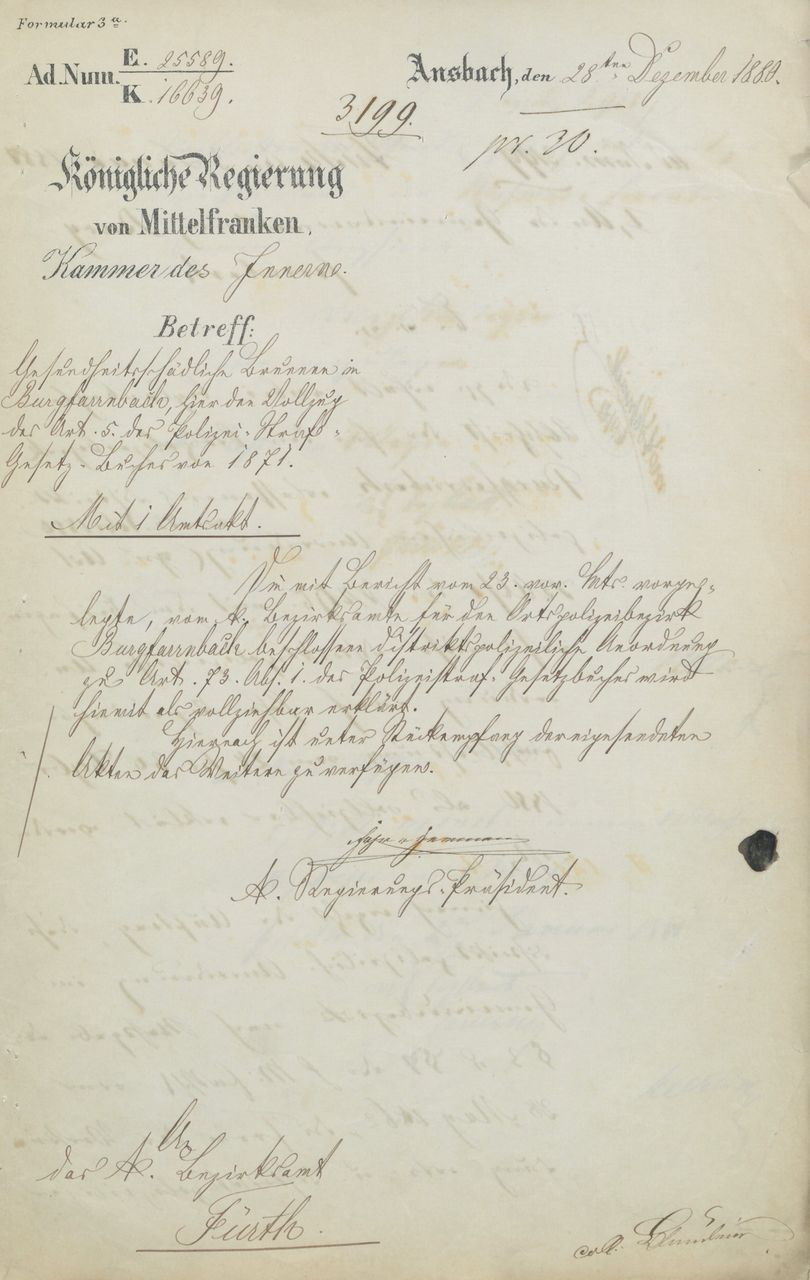 Formular 3 a.
Ad. Num. E. 25589.
K. 16639.
Ansbach, den 28ten Dezember 1880.
3199.
pr. 30.
Königliche Regierung
von Mittelfranken,
Kammer des Innern.
Betreff:
Gesundheitsschädliche Brunnen in
Burgfarrnbach, hier den Vollzug
des Art. 5. des Polizei-Straf-
Gesetz-Buches von 1871.
Mit 1 Amtsakt.
Die mit Bericht vom 23. vor. Mts. vorge-
legte, vom k. Bezirksamte für den Ortspolizeibezirk
Burgfarrnbach beschlossene distriktspolizeiliche Anordnung
zu Art. 73. Abs. 1. des Polizeistraf-Gesetzbuches wird
hiemit als vollziehbar erklärt.
Hienach ist unter Rückempfang der eingesendeten
Akten das Weitere zu verfügen.
K. Regierungs-Präsident.
An
das K. Bezirksamt
Fürth.
coll.